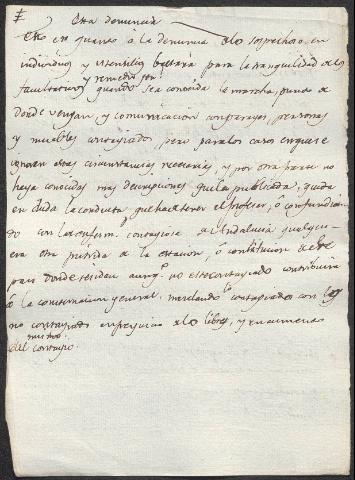 Esta denuncia
Esto es quanto à la denuncia de lo sospechoso en
individuos y utensilios bastará para la tranquilidad de los
y remedio por
facultativos quando sea conocida la marcha, punto de
donde vengan, y comunicacion con parages, personas
y muebles contagiados, pero para los casos en que se
ignoren estas circunstancias necesarias, y por otra parte no
haya conocidas mas descripciones que la publicada, queda
en duda la conducta que ha de tener el profesor, ó confundien
do con la enferm. contagiosa de Andalucia qualqui-
era otra putrida de la estacion, ó constitucion de este
pais donde residen aunq.e no este contagiado contribuira
à la consternacion general. mezclando los contagiados con los
no contagiados en perjuicio de los libres, y en aumento
mismo
del contagio.